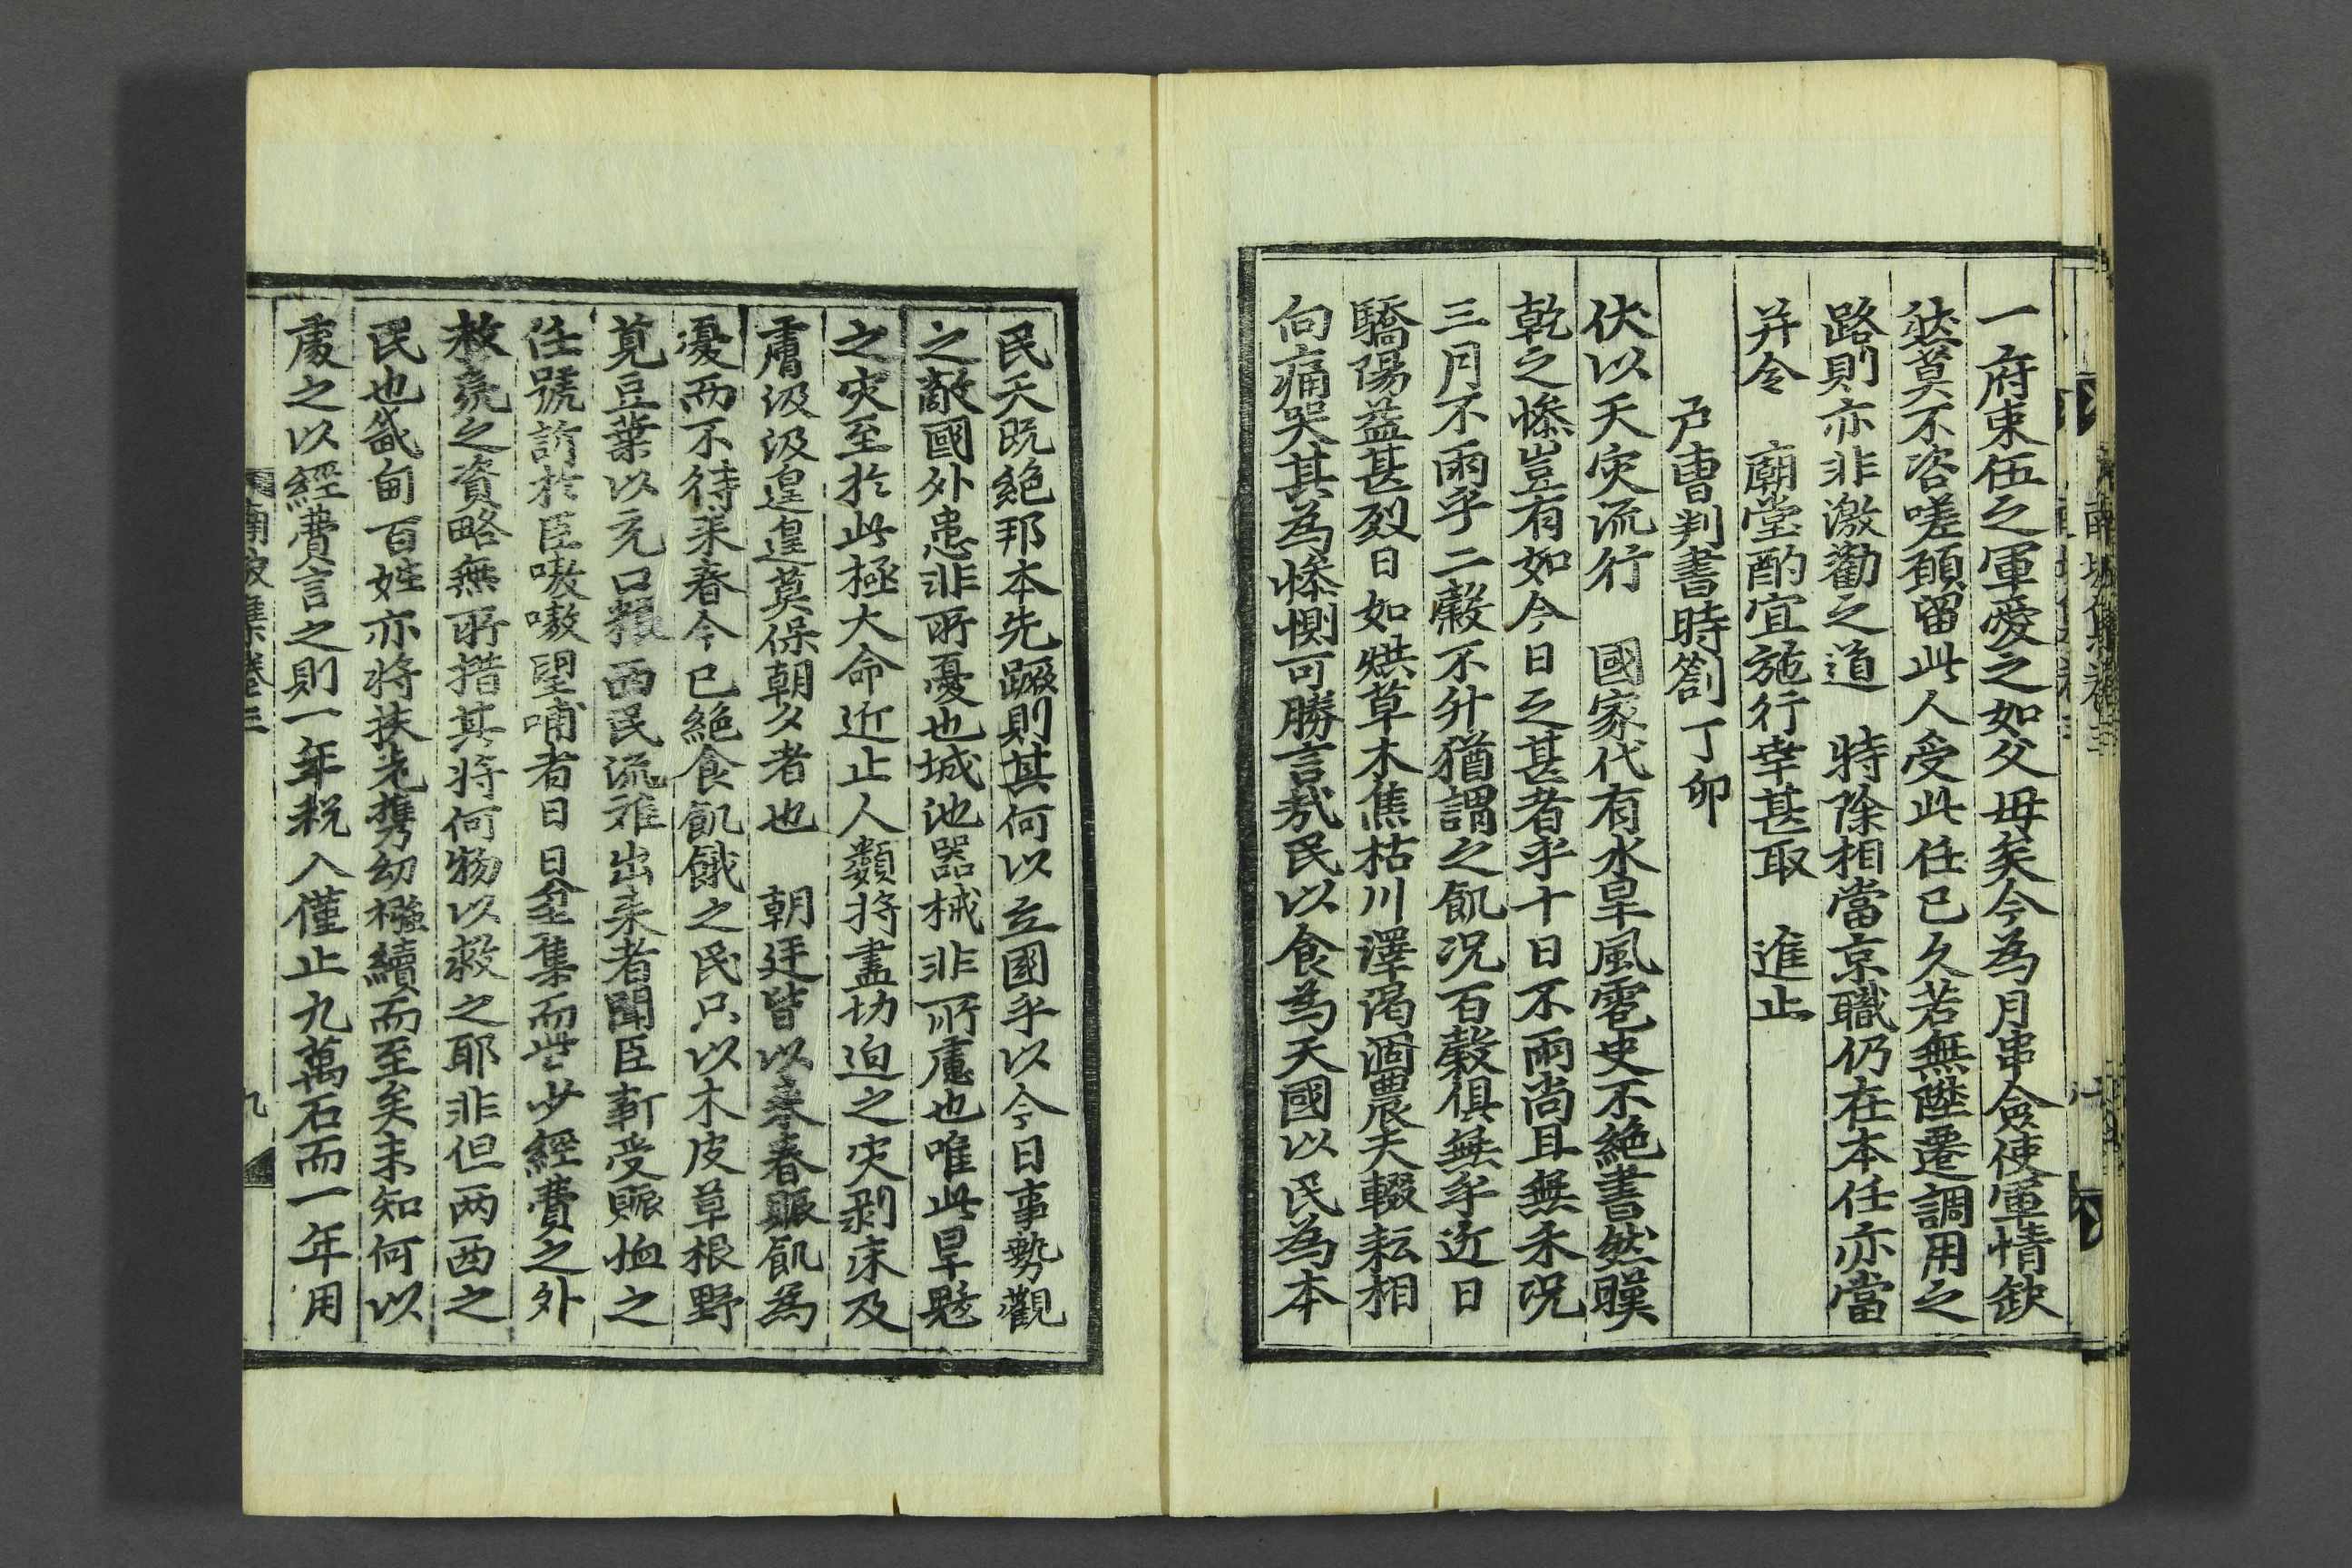 一府束伍之軍愛之如父母矣今為月串僉使軍情欽
然莫不咨嗟顧留此人受此任已久若無陞遷調用之
路則亦非激勸之道　特除相當京職仍在本任亦當
并令　廟堂酌宜施行幸甚取　進止
戶曹判書時箚丁卯
伏以天灾流行　國家代有水旱風雹史不絶書然暵
乾之慘豈有如今日之甚者乎十日不雨尚且無禾況
三月不雨乎二糓不升猶謂之飢況百糓俱無乎近日
驕陽益甚烈日如烘草木焦枯川澤渴涸農夫輟耘相
向痛哭其為慘惻可勝言㦲民以食為天國以民為本
民天既絶邦本先蹶則其何以立國乎以今日事勢觀
之敵國外患非所憂也城池器械非所慮也唯此旱魃
之灾至於此極大命近止人類將盡切迫之灾剥床及
膚汲汲遑遑莫保朝夕者也　朝廷皆以來春賑飢為
憂而不待来春今已絶食飢餓之民只以木皮草根野
莧豆葉以充口粮西民流離出来者聞臣新受賑恤之
任號訴於臣嗷嗷望哺者日日坌集而些少經費之外
救荒之資略無所措其將何物以救之耶非但两西之
民也畿甸百姓亦將扶老携幼襁續而至矣未知何以
處之以經費言之則一年税入僅止九萬石而一年用
南坡集卷三
九